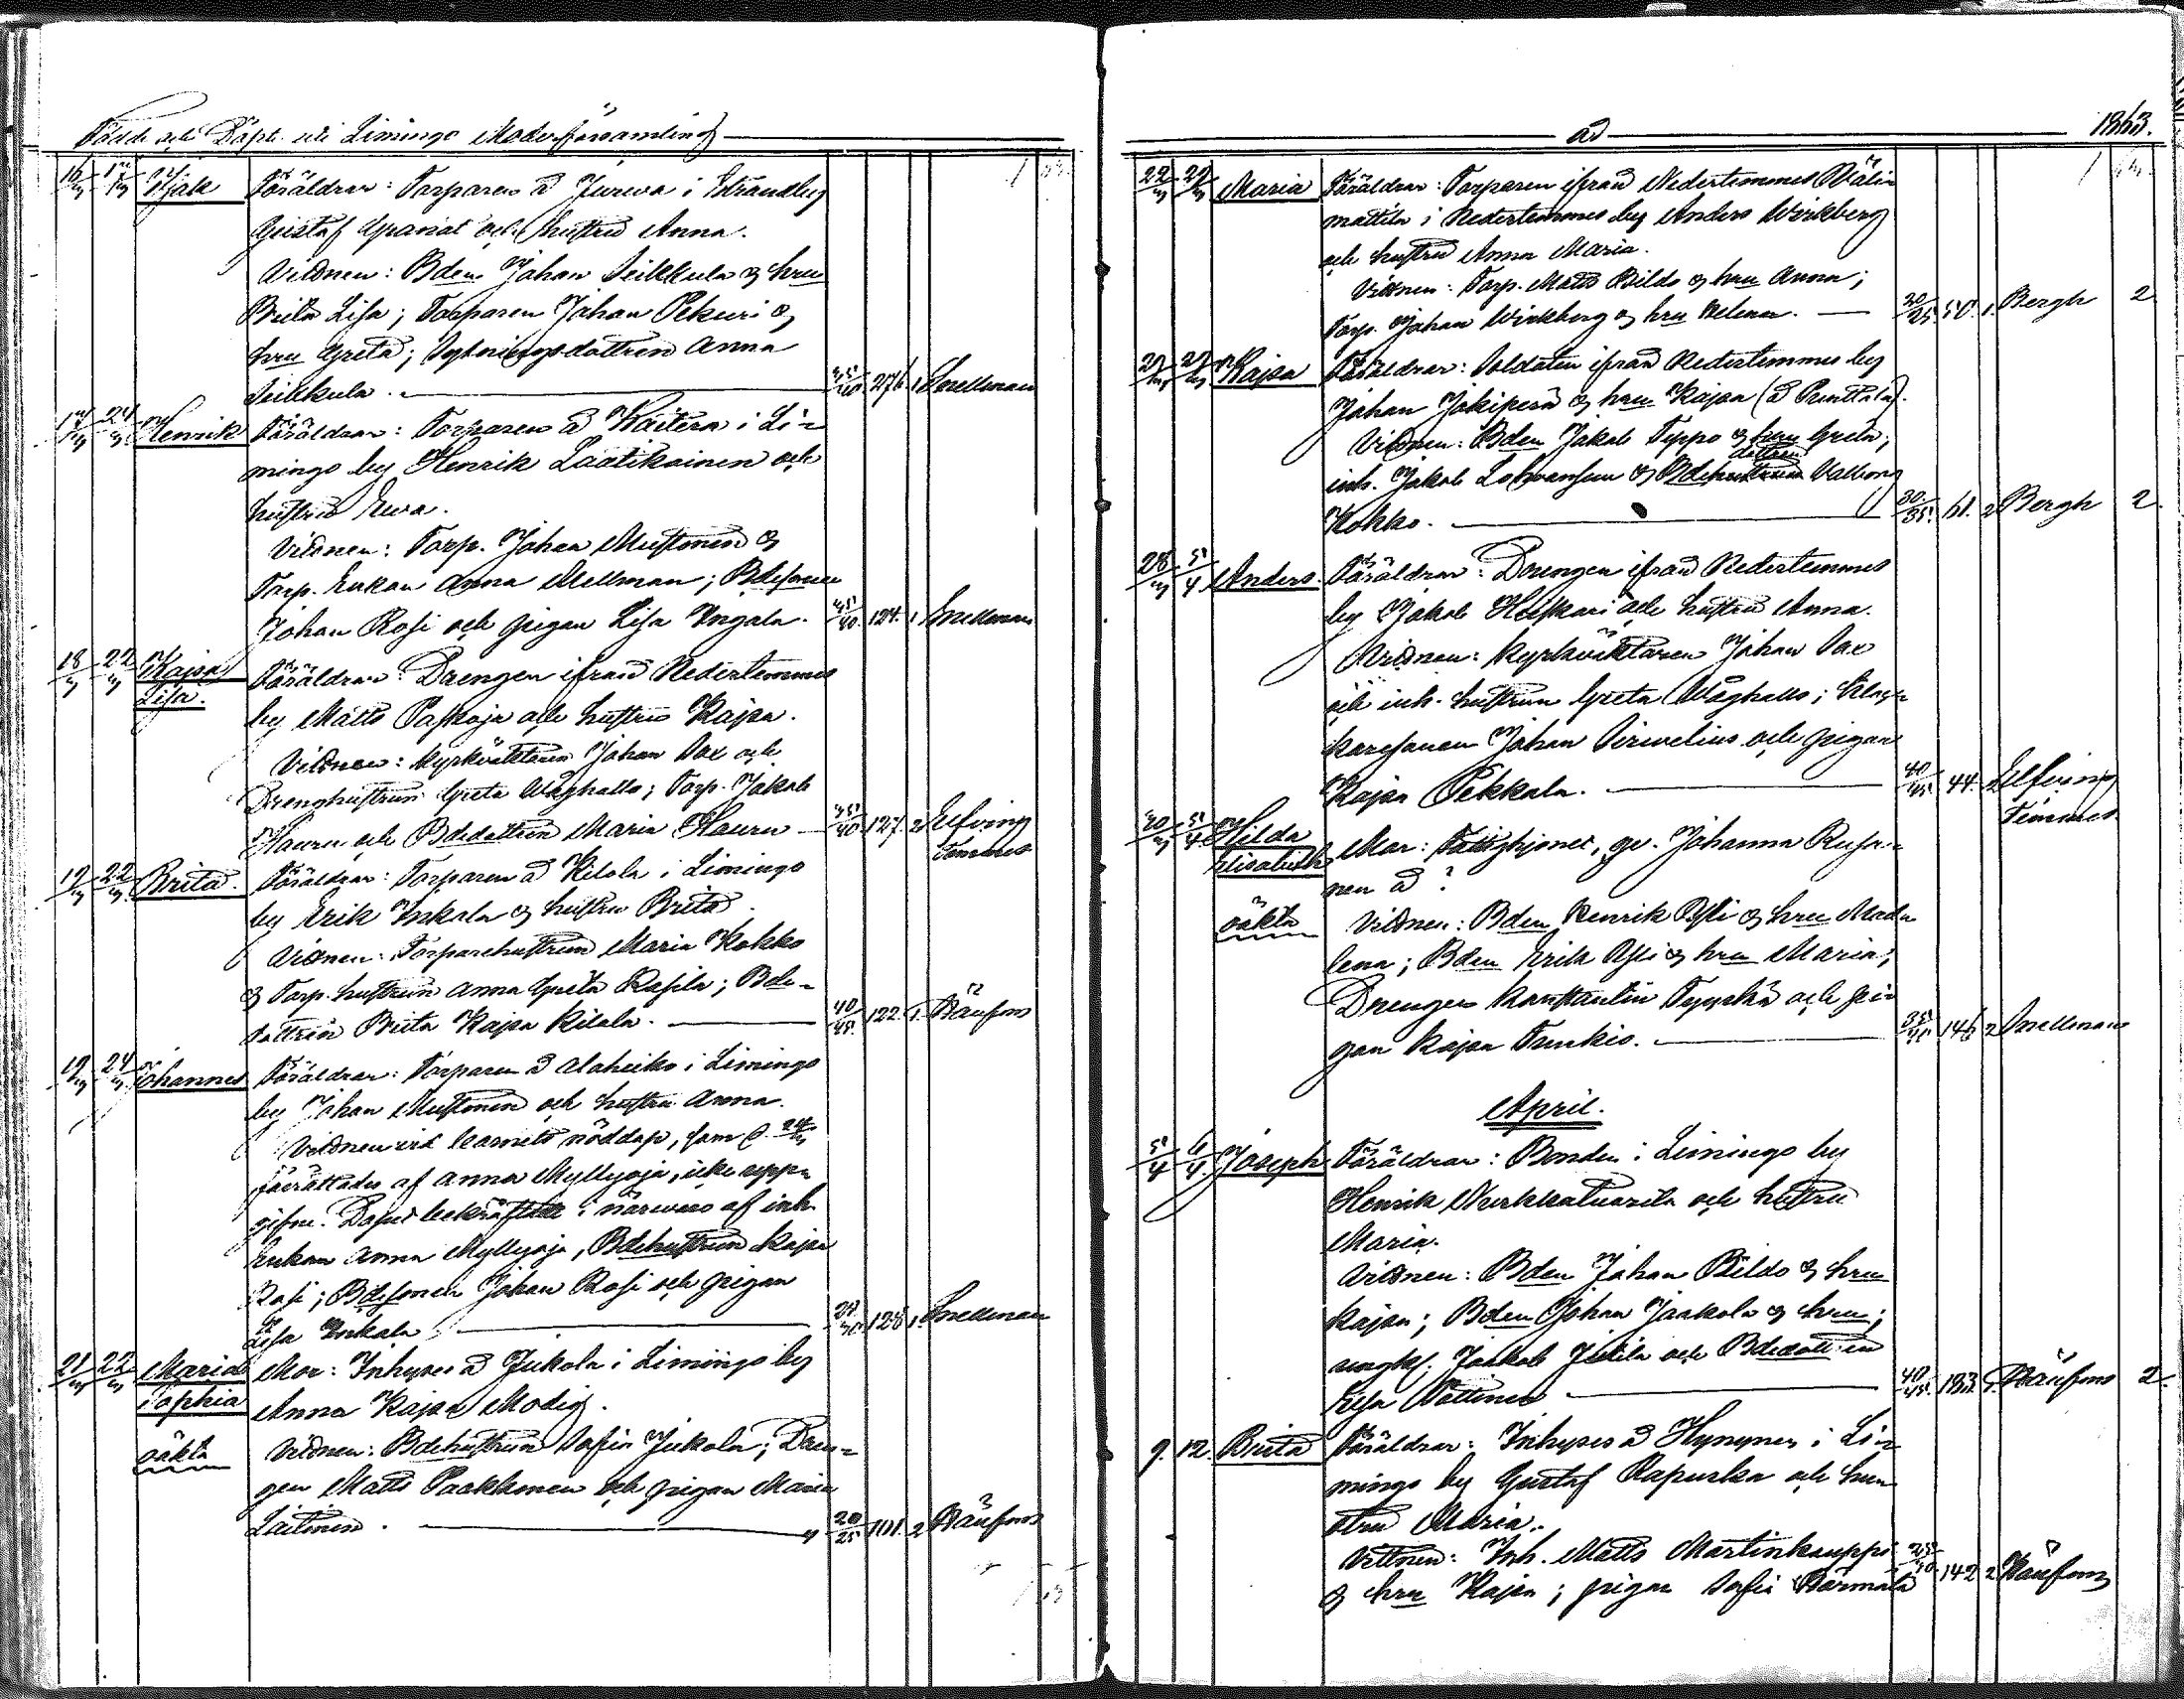 Födde och Döpte uti Limingo Moderförsamling
16/3 17/3 Isak Föräldrar: Torparen å Jurva i Strandby
Gustaf Granat och hustru Anna.
Vittnen: Bden Johan Seikkula & hru
Brita Lisa; Torparen Johan Pekuri &
hru Greta; Sytningsdottren Anna
Seikkula. 35/40 276. 1 Snellman
17/3 24/3 Henrik Föräldrar: Torparen å Kaitera i Li-
mingo by Henrik Laatikainen och
hustru Eva.
Vittnen: Torp. Johan Mustonen &
Torp. Enkan Anna Mellman; Bdesonen
Johan Rosi och pigan Lisa Ingala. 35/40. 124. 1 Snellman
18/3 22/3 Kajsa
Lisa. Föräldrar: Drengen ifrån Nedertemmes
by Matts Paskoja och hustru Kajsa.
Vittnen: Kyrkväktaren Johan Sax och
Drenghustrun Greta Våghalls; Torp. Jakob
Hauru och Bdedottren Maria Hauru 35/40 127. 2 Elfving
Temmes
19/3 22/3 Brita. Föräldrar: Torparen å Kilola i Limingo
by Erik Inkala & hustru Brita.
Vittnen: Torparehustrun Maria Kokko
& Torp. hustrun Anna Greta Rasila; Bde-
dottren Brita Kajsa Kilala. 40/45. 122. 1.
19/3 24/3 Johannes Föräldrar: Torparen å Alaheiko i Limingo
by Johan Mustonen och hustru Anna.
Vittnen vid barnets nöddop, som d. 24/3
förrättades af Anna Myllyoja, icke upp-
gifne. Dopet bekräftadt i närvaro af inh.
Enkan Anna Myllyoja, Bdehustrun Kajsa
Rosi; Bdesonen Johan Rosi och pigan
Lisa Inkala 128. 1. Snellman
21/3 22/3 Maria
Sophia Mor: Inhyses å Jukola i Limingo by
Anna Kajsa Modig.
oäkta Vittnen: Bdehustrun Sofia Jukola; Dren-
gen Matts Paakkonen och pigan Maria
Laitinen. 20/25 101. 2
ad 1863.
22/3 29/3 Maria Föräldrar: Torparen ifrån Nedertemmes Väli-
mattila i Nedertemmes by Anders Wirkberg
och hustru Anna Maria.
Vittnen: Torp. Matts Bildo & hru Anna;
Torp. Johan Wirkberg & hru Helena. 20/25. 50. 1. Bergh 2
27/3 29/3 Kajsa Föräldrar: Soldaten ifrån Nedertemmes by
Johan Jokiperä & hru Kajsa (å Punttala).
Vittnen: Bden Jakob Teppo & hru Greta;
dottren
inh. Jakob & Bdehustrun Valborg
Kokko. 30/35. 61. 2 Bergh 2.
28/3 5/4 Anders. Föräldrar: Drengen ifrån Nedertemmes
by Jakob Heiskari och hustru Anna.
Vittnen: Kyrkväktaren Johan Sax
och inh. hustrun Greta Våghalls; Kloc-
karesonen Johan Sirvelius och pigan
Kajsa Pekkala. 40/45 44. 2 Elfving
Temmes
30/3 5/4 Hilda
Elisabeth Mor: Fattighjonet, qv. Johanna Rusa-
nen å?
oäkta Vittnen: Bden Henrik Ylli & hru Mada
lena; Bden Erik Ylli & hru Maria;
Drengen Konstantin Tyyskä och pi-
gan Kajsa Tunkio. 35/40 146 2 Snellman
April.
5/4 6/4 Joseph Föräldrar: Bonden i Limingo by
Henrik Nurkkatuarila och hustru
Maria.
Vittnen: Bden Johan Bildo & hru
Kajsa; Bden Johan Jaakola & hru;
Jaakob Jutila och Bdedottren
Lisa 40/45. 133. 1. 2.
9. 12. Brita Föräldrar: Inhyses å Hyrynen i Li-
mingo by Gustaf Rapurka och hu-
stru Maria.
Vittnen: Inh. Matts Martinkauppi 142 2
& hru Kajsa; pigan Sofia Pärmälä